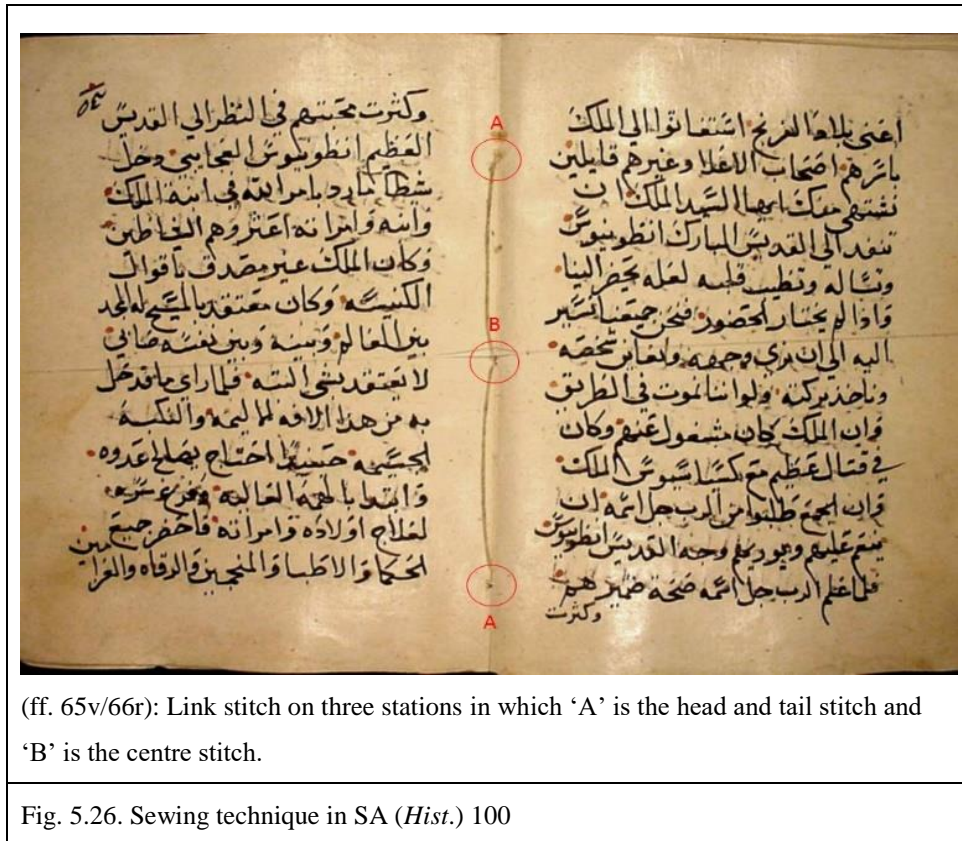 اعنى بلاد الفرنج استغاثوا الي الملك
باسرهم اصحاب وغيرهم قايلين
نشتهي منك ايها السيد الملك ان
تنفد الي القديس المبارك انطونيوس
وتساله وتطيب قلبه لعله يحضر الينا
واذا لم يختار الحضور فنحن جميعنا نسير
اليه الى ان نري وجهه ونعاين شخصه
وناخذ بركته ولو اننا نموت في الطريق
وان الملك كان مشغول عنهم وكان
في قتال عظيم مع الملك
وان الجمع طلبوا من الرب جل اسمه ان
ينعم عليهم ويوريهم وجه القديس انطونيوس
فلما علم الرب جل اسمه صحة ضميرهم
وكثرت
وكثرت محبتهم في النظر الي القديس
العظيم انطونيوس العجايبي دخل
مارد بامر الله في ابنة الملك
وابنه وامراته
وكان الملك غير مصدق باقوال
الكنيسه وكان معتقد بالمسيح له المجد
بين العالم وبينه وبين نفسه صابي
لا يعتقد بشى البته فلما راي ما قد حل
به من هذا الافه والنكبه
الجسيمه حينيذ احتاج يصلح اعدوه
وابتدا بالهمه العاليه
لعلاج اولاده وامراته فاحضر جميع
الحكما والاطبا والمنجمين والرقاه
A
B
A
(ff. 65v/66r): Link stitch on three stations in which ‘A’ is the head and tail stitch and
‘B’ is the centre stitch.
Fig. 5.26. Sewing technique in SA (Hist.) 100